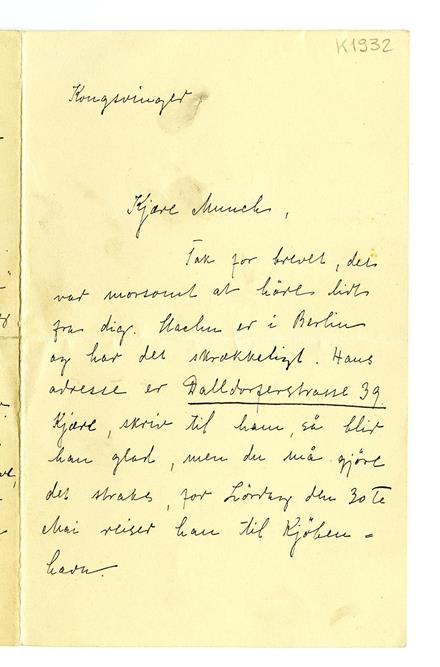 K1932
Kongsvinger
Kjære Munch,
Tak for brevet, det
var morsomt at høre lidt
fra dig. Stachu er i Berlin
og har det skrækkeligt. Hans
adresse er Dalldorferstrasse 39.
Kjære, skriv til ham, så blir
han glad, men du må gjöre
det straks, for Lördag den 30te
Mai reiser han til Kjöben=
havn.